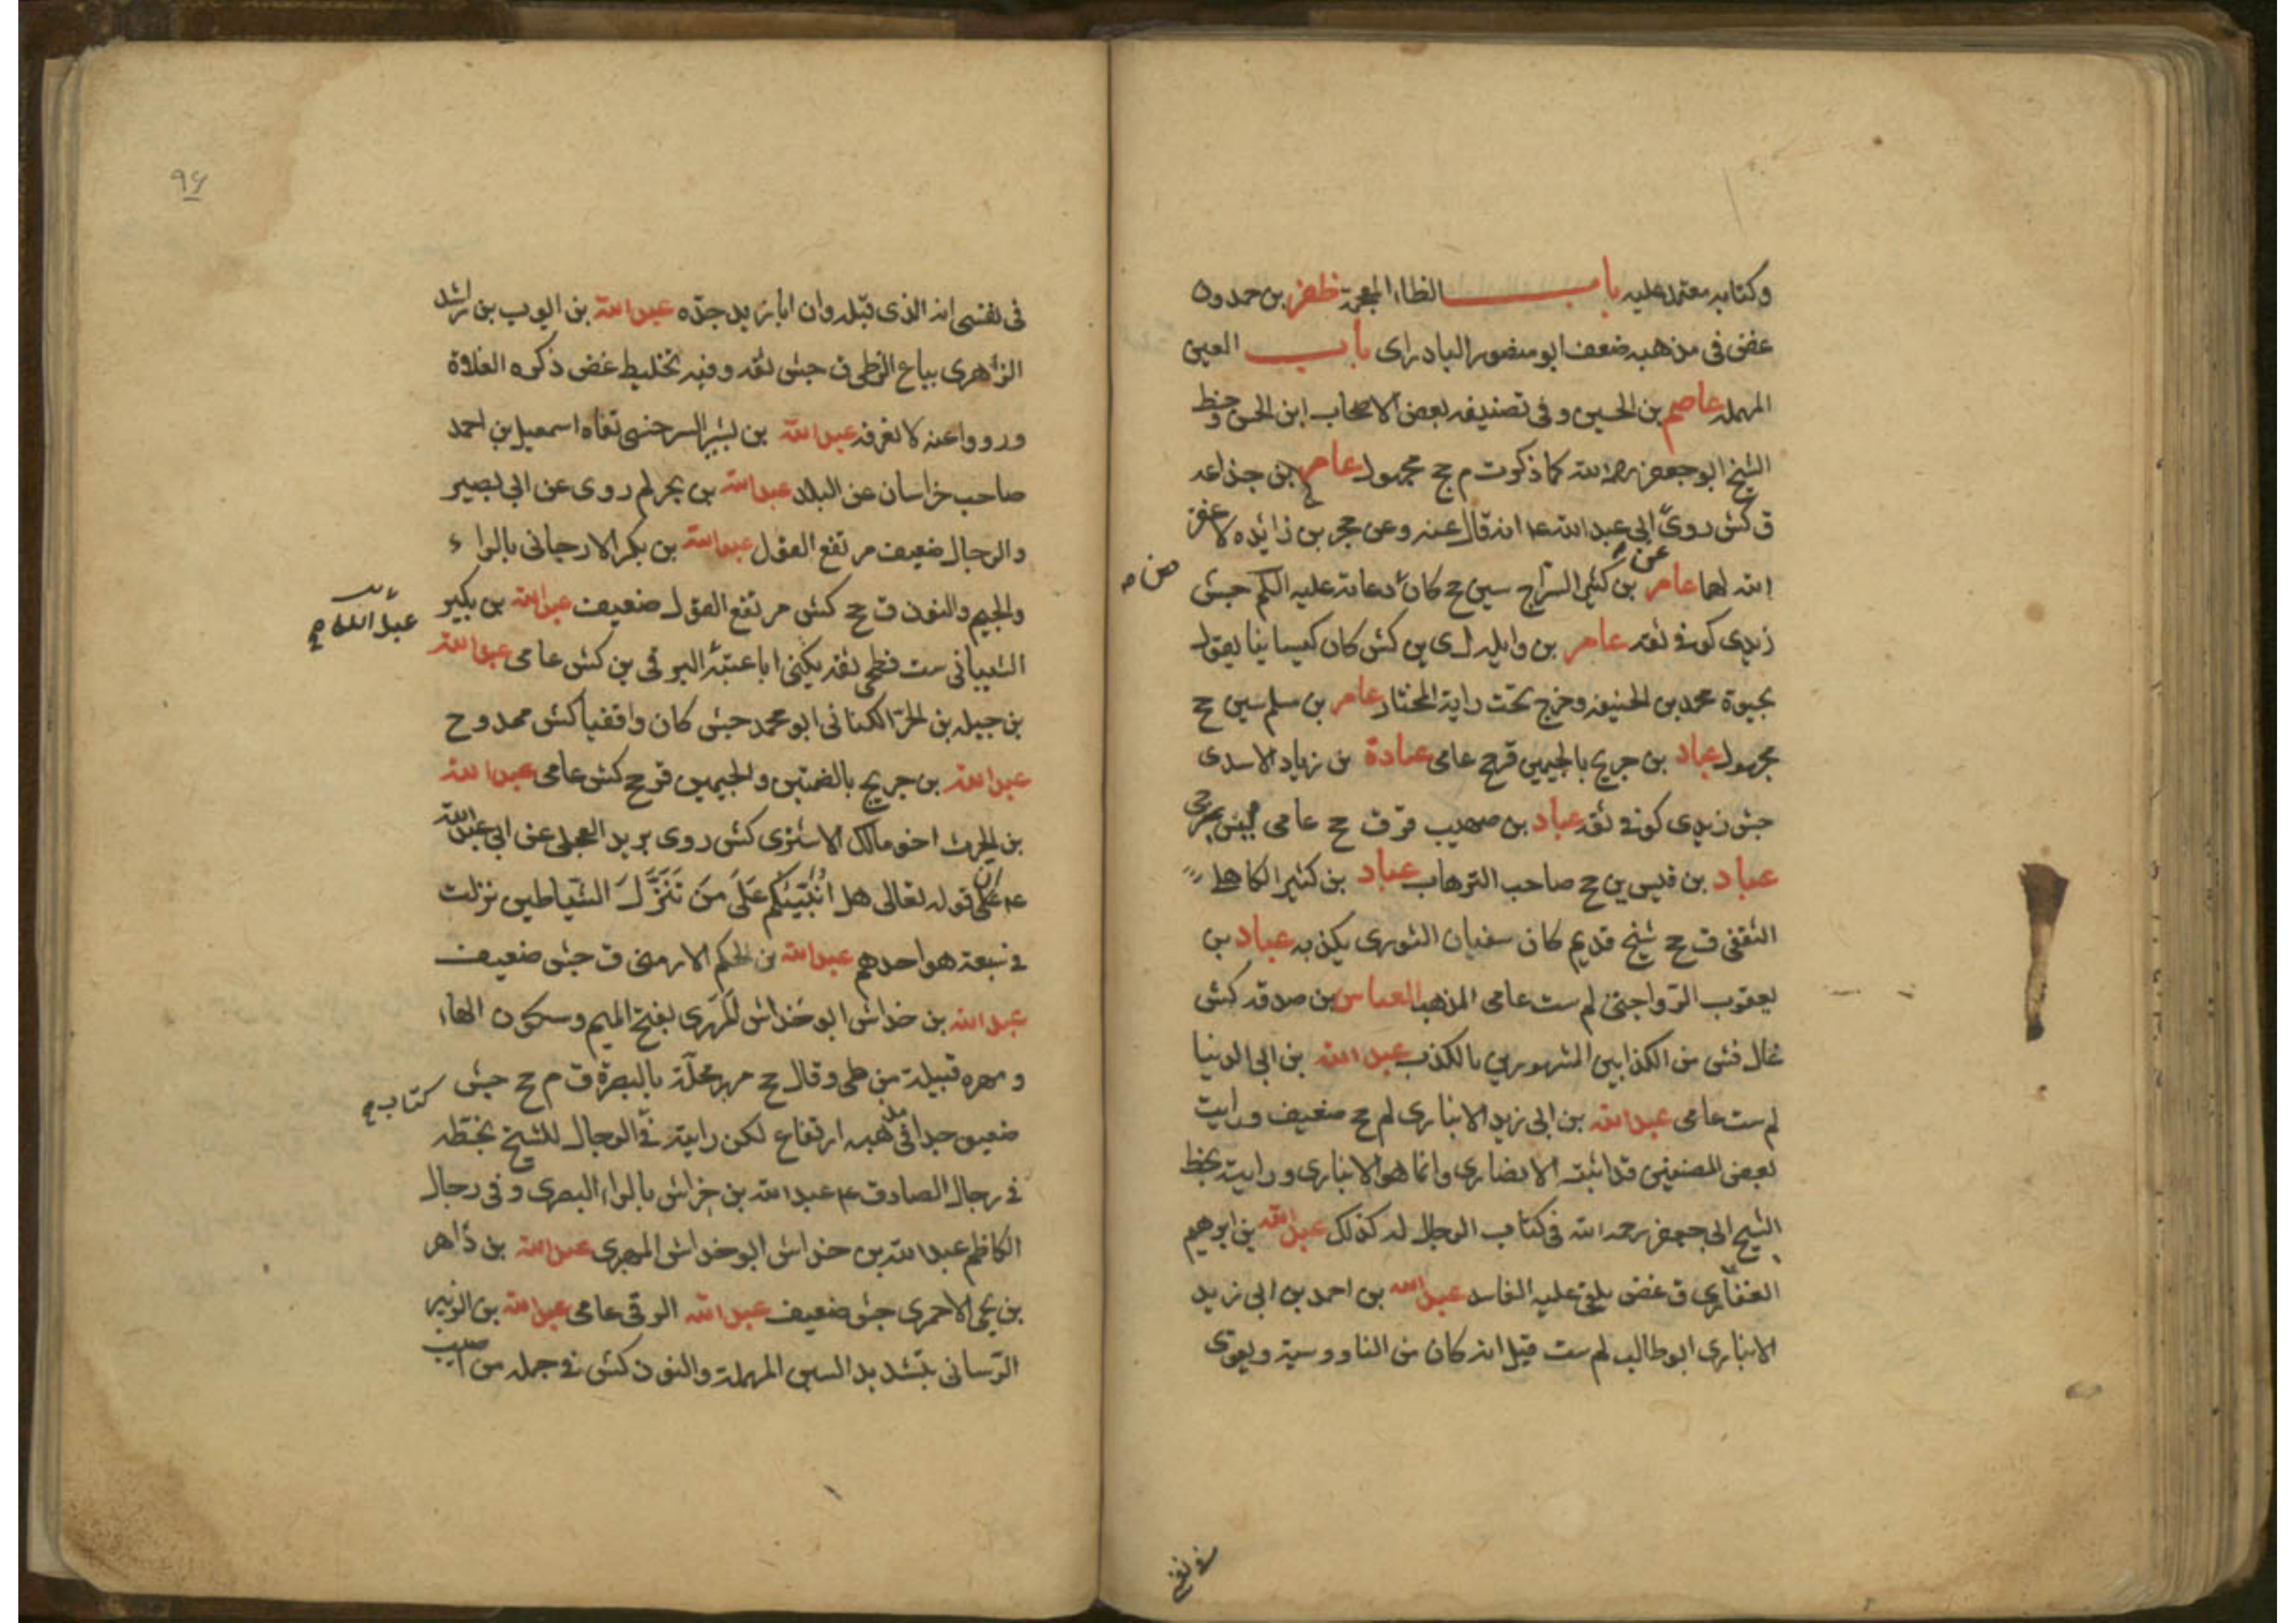 وكتابه معتمد عليه باب الظاء المعجمة ظفر بن حمدون
غض في مذهبه ضعف ابو منصور البادراى باب العين
المهملة عاصم بن الحسين وفى تصنيف بعض الاصحاب ابن الحسن وخط
الشيخ ابو جعفر رحمه الله كما ذكرت م جخ مجهول عامر بن جذاعه
ق كش روى ابى عبد الله ع انه قال عنه وعن حجر بن زائده لا غفر
عن
الله لهما عامر بن كثير السراج سين جخ كان دعاته عليه السلم جش
ض م
زيدى كوفى ثقه عامر بن واثله ل ى ين كش كان كيسانيا يقول
بحيوة محمد بن الحنيفه وخرج تحت راية المختار عامر بن مسلم سين جخ
مجهول عباد بن جريح بالجيمين قر جخ عامى عبادة بن زياد الاسدى
جش زيدى كوفى ثقه عباد بن صهيب قر ق جخ عامى
عباد بن قيس ين جخ صاحب الترهاب عباد بن كثير الكاهلى
الثقفى ق جخ شيخ قديم كان سفيان الثورى يكذبه عباد بن
يعقوب الرواجنى لم ست عامى المذهب العباس بن صدقه كش
غال فش من الكذابين المشهورين بالكذب عبد الله بن ابى الدنيا
لم ست عامى عبد الله بن ابى زيد الانبارى لم جخ ضعيف ورايت
بعض المصنفين قد اثبته الانصارى وانما هو الانبارى ورايت بخط
الشيخ ابى جعفر رحمه الله فى كتاب الرجال له كذلك عبد الله بن ابرهيم
الغفارى ق غض يلقى عليه الفاسد عبد الله بن احمد بن ابى زيد
الانبارى ابو طالب لم ست قيل انه كان من الناووسية ويقوى
۹۶
فى نفسى انه الذى قبله وان ابا زيد جده عبد الله بن ايوب بن راشد
الزهرى بياع الزطى ق جش ثقه وفيه تخليط غض ذكره الغلاة
ورووا عنه لا نعرفه عبد الله بن بشير السرخسى نفاه اسمعيل بن احمد
صاحب خراسان عن البلاد عبد الله بن بحر لم روى عن ابى بصير
والرجال ضعيف مرتفع القول عبد الله بن بكر الارجانى بالراء
والجيم والنون ق جخ كش مرتفع القول ضعيف عبد الله بن بكير
عبد الله
الشيبانى ست فطحى ثقه يكنى ابا عتبة البرقى ين كش عامى عبد الله
بن جبله بن الحر الكنانى ابو محمد جش كان واقفيا كش ممدوح
عبد الله بن جريح بالضمتين والجيمين قر جخ كش عامى عبد الله
بن الحرث اخو مالك الاشترى كش روى بريد العجلى عن ابى عبد الله
ع ان قوله تعالى هل انبئكم على من تنزل الشياطين نزلت
فى سبعة هو احدهم عبد الله بن الحكم الارمنى ق جش ضعيف
عبد الله بن خداش ابو خداش المهرى بفتح الميم وسكون الهاء
ومهره قبيلة من طى وقال جخ مهر محلة بالبصرة ق م جخ جش
كتاب
ضعيف جدا فى مذهبه ارتفاع لكن رايته فى الرجال للشيخ بخطه
فى رجال الصادق ع عبد الله بن خراش بالراء البصرى وفى رجال
الكاظم عبد الله بن خداش ابو خداش المهرى عبد الله بن داهر
بن يحيى الاحمرى جش ضعيف عبد الله الرقى عامى عبد الله بن الزبير
الرسانى بتشديد السين المهملة والنون كش فى جمله من اصيب